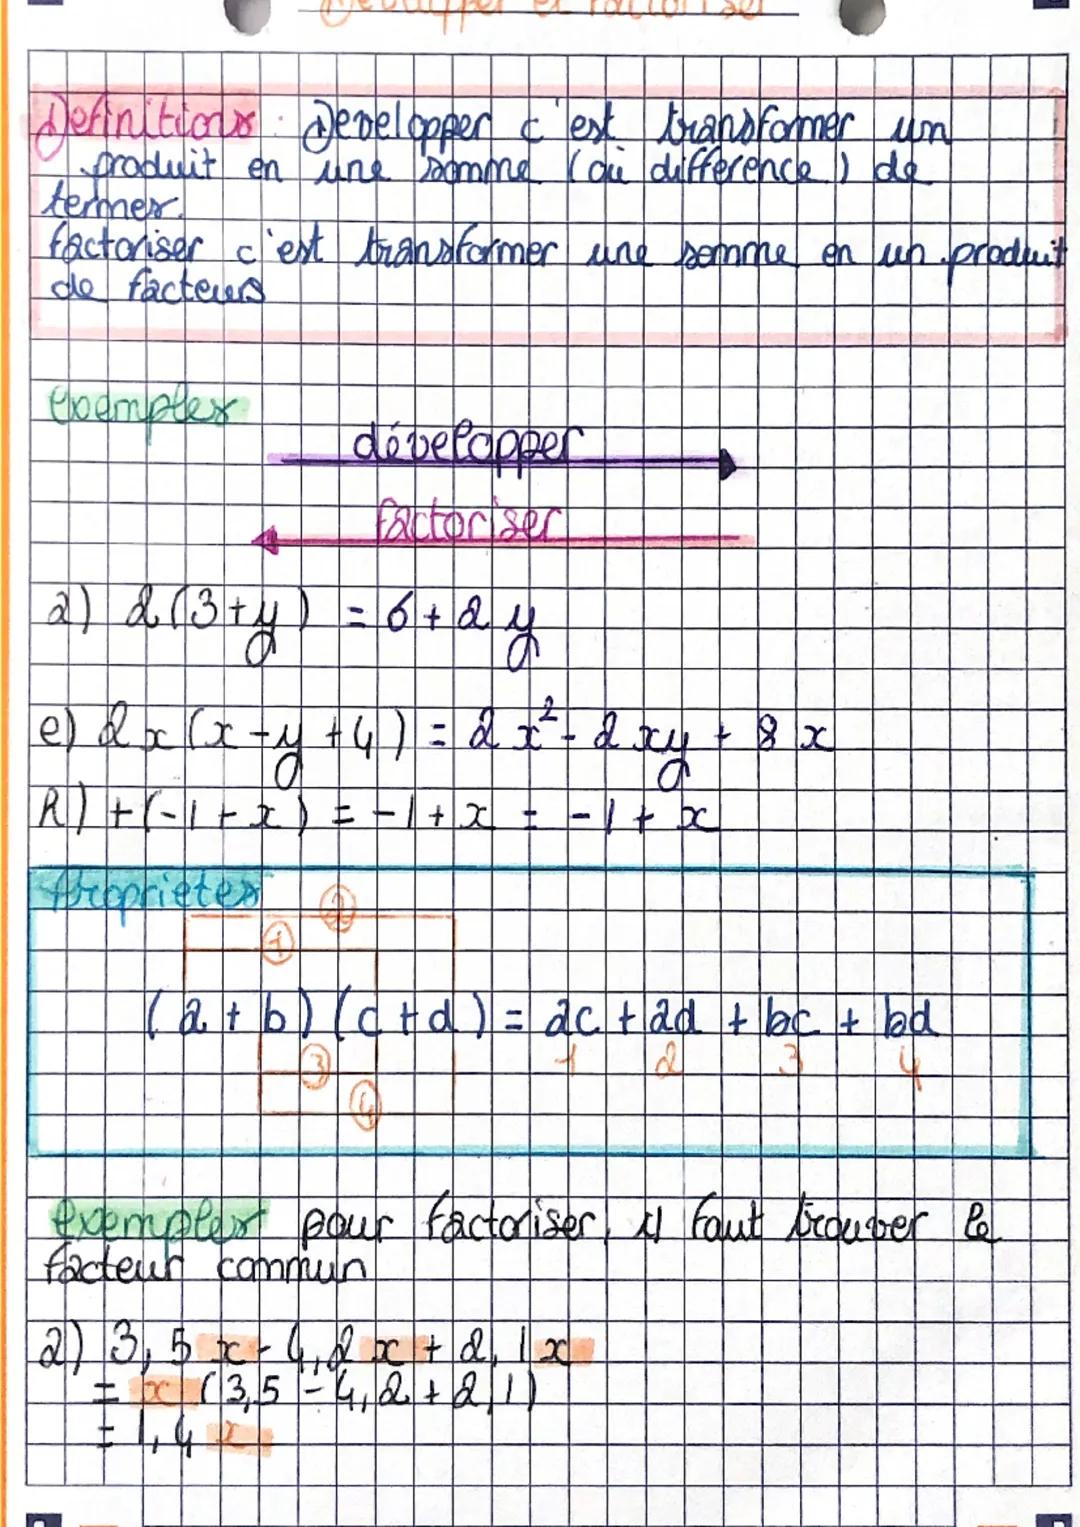 Developper et factoriser
Definitions : Developper c'est transformer un
produit en une somme (où difference) de
termes.
factoriser c'est transformer une somme en un produit
de facteurs
exemples
développer
factoriser
a) 2(3+y) = 6 + 2y
e) 2x(x-y+4) = 2x² - 2xy + 8x
h) +(-1+x) = -1+x = -1+x
Proprietes
2
1
(a+b)(c+d) = ac + ad + bc + bd
3 1 2 3 4
4
exemples pour factoriser, il faut trouver le
facteur commun
a) 3,5x - 4,2x + 2,1x
= x (3,5 - 4,2 + 2,1)
= 1,4 x